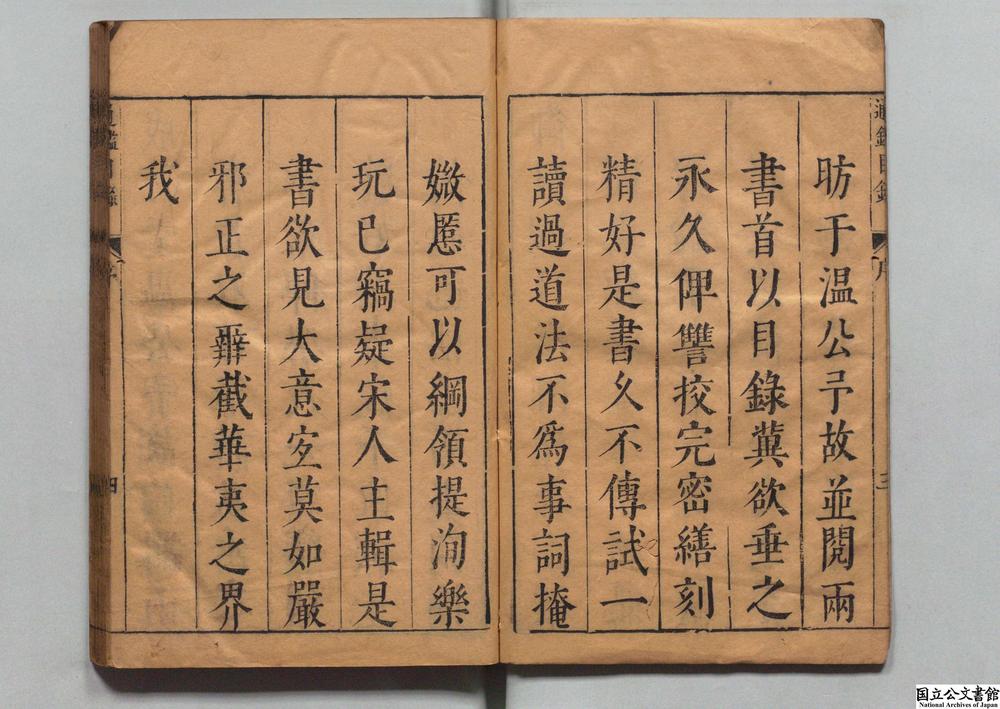 昉于温公予故並閱兩
書首以目錄冀欲垂之
永久俾讐挍完密繕刻
精好是書久不傳試一
讀過道法不為事詞掩
媺慝可以綱領提洵樂
玩已竊疑宋人主輯是
書欲見大意宐莫如嚴
邪正之辭截華夷之界
我
通鑑目錄
序
三
通鑑目錄
序
四
国立公文書館
National Archives of Japan